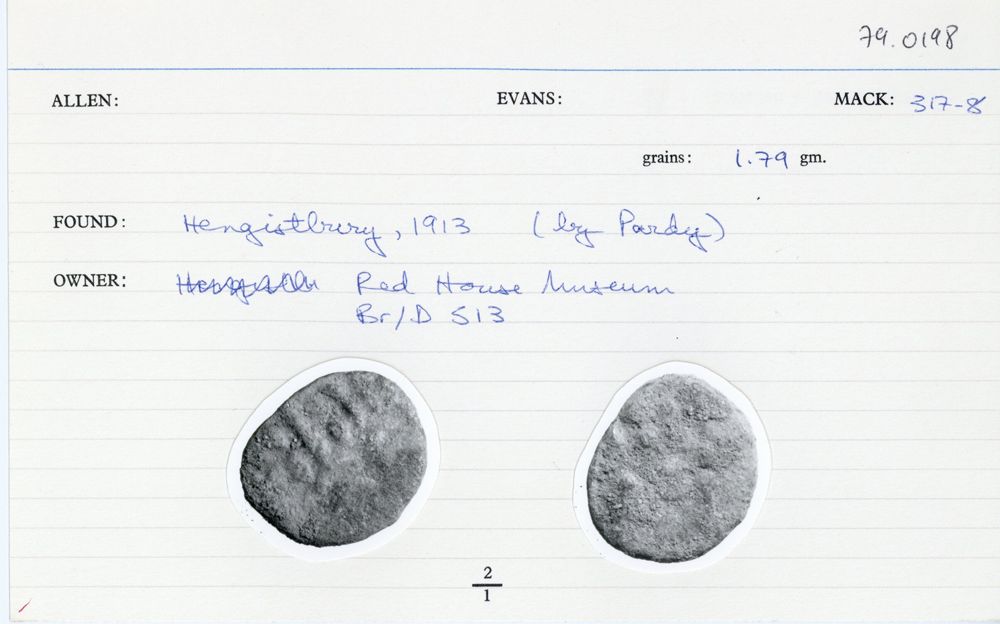 79.0198
ALLEN: EVANS: MACK: 317-8
grains: 1.79 gm.
FOUND: Hengistbury, 1913 (by Pardy)
OWNER: Red House Museum
Br/D 513
2
1